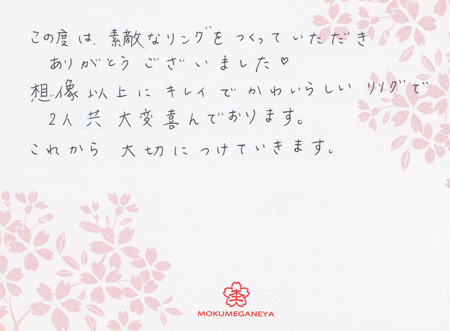 この度は、素敵なリングをつくっていただき
ありがとうございました♡
想像以上にキレイでかわいらしいリングで
2人共大変喜んでおります。
これから大切につけていきます。
MOKUMEGANEYA